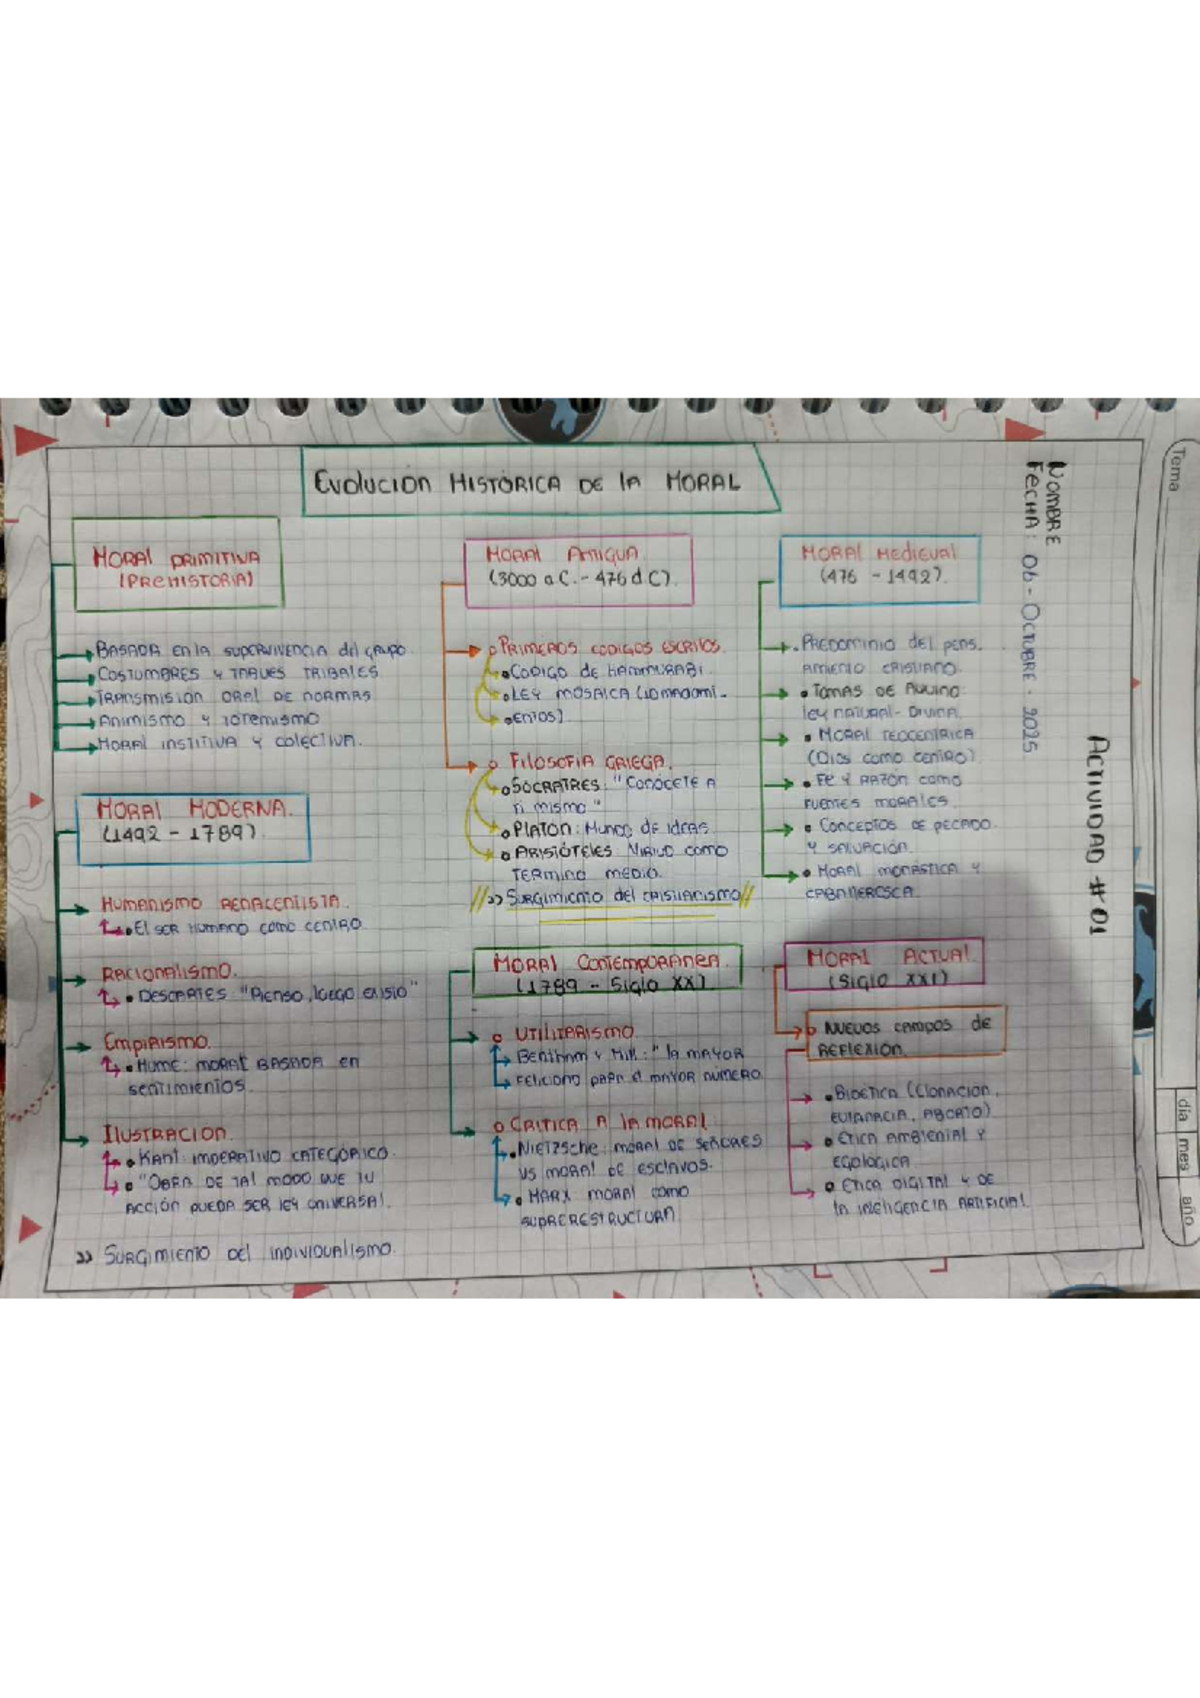 EVOLUCIÓN HISTÓRICA DE LA MORAL
MORAL PRIMITIVA
(PREHISTORIA)
BASADA EN LA SUPERVIVENCIA DEL GRUPO.
COSTUMBRES Y TABUES TRIBALES
TRANSMISIÓN ORAL DE NORMAS
ANIMISMO Y TOTEMISMO
MORAL INSTITIVA Y COLECTIVA.
MORAL MODERNA.
(1492 - 1789).
HUMANISMO RENACENTISTA.
El SER HUMANO COMO CENTRO.
RACIONALISMO.
DESCARTES "PIENSO, LUEGO EXISTO"
EMPIRISMO.
HUME: MORAL BASADA EN
SENTIMIENTOS.
ILUSTRACION.
KANT: IMPERATIVO CATEGÓRICO.
"OBRA DE TAL MODO QUE TU
ACCIÓN PUEDA SER LEY UNIVERSAL.
>> SURGIMIENTO DEL INDIVIDUALISMO.
MORAL ANTIGUA
(3000 a.C. - 476 d.C).
PRIMEROS CODIGOS ESCRITOS.
CODIGO DE HAMMURABI.
LEY MOSAICA (10 MADAMI-
ENTOS)
FILOSOFIA GRIEGA.
SÓCRATRES: "CONÓCETE A
TI MISMO"
PLATON: MUNDO DE IDEAS.
ARISTÓTELES VIRTUD COMO
TERMINO MEDIO.
//>> SURGIMIENTO DEL CRISTIANISMO//
MORAL CONTEMPORANEA.
(1789 - SIGLO XX)
UTILITARISMO.
BENTHAM Y MILL: "LA MAYOR
FELICIDAD PARA EL MAYOR NÚMERO
CRITICA A LA MORAL.
NIETZSCHE: MORAL DE SEÑORES
VS MORAL DE ESCLAVOS.
MARX MORAL COMO
SUPRERESTRUCTURA
MORAL MEDIEVAL
(476 - 1492).
PREDOMINIO DEL PENS.
AMIENTO CRISTIANO.
TOMAS DE AQUINO:
LEY NATURAL - DIVINA.
MORAL TEOCENTRICA
(DIOS COMO CENTRO).
FE Y RAZÓN COMO
FUENTES MORALES.
CONCEPTOS DE PECADO
Y SALVACIÓN.
MORAL MONÁSTICA Y
CABALLERESCA.
MORAL ACTUAL
(SIGLO XXI)
NUEVOS CAMPOS DE
REFLEXION.
BIOÉTICA (CLONACIÓN,
EUTANACIA, ABORTO)
ETICA AMBIENTAL Y
EGOLOGICA
ETICA DIGITAL Y DE
LA INTELIGENCIA ARTIFICIAL
NOMBRE
FECHA: 06 - OCTUBRE - 2025.
ACTIVIDAD #01
Tema
día mes año